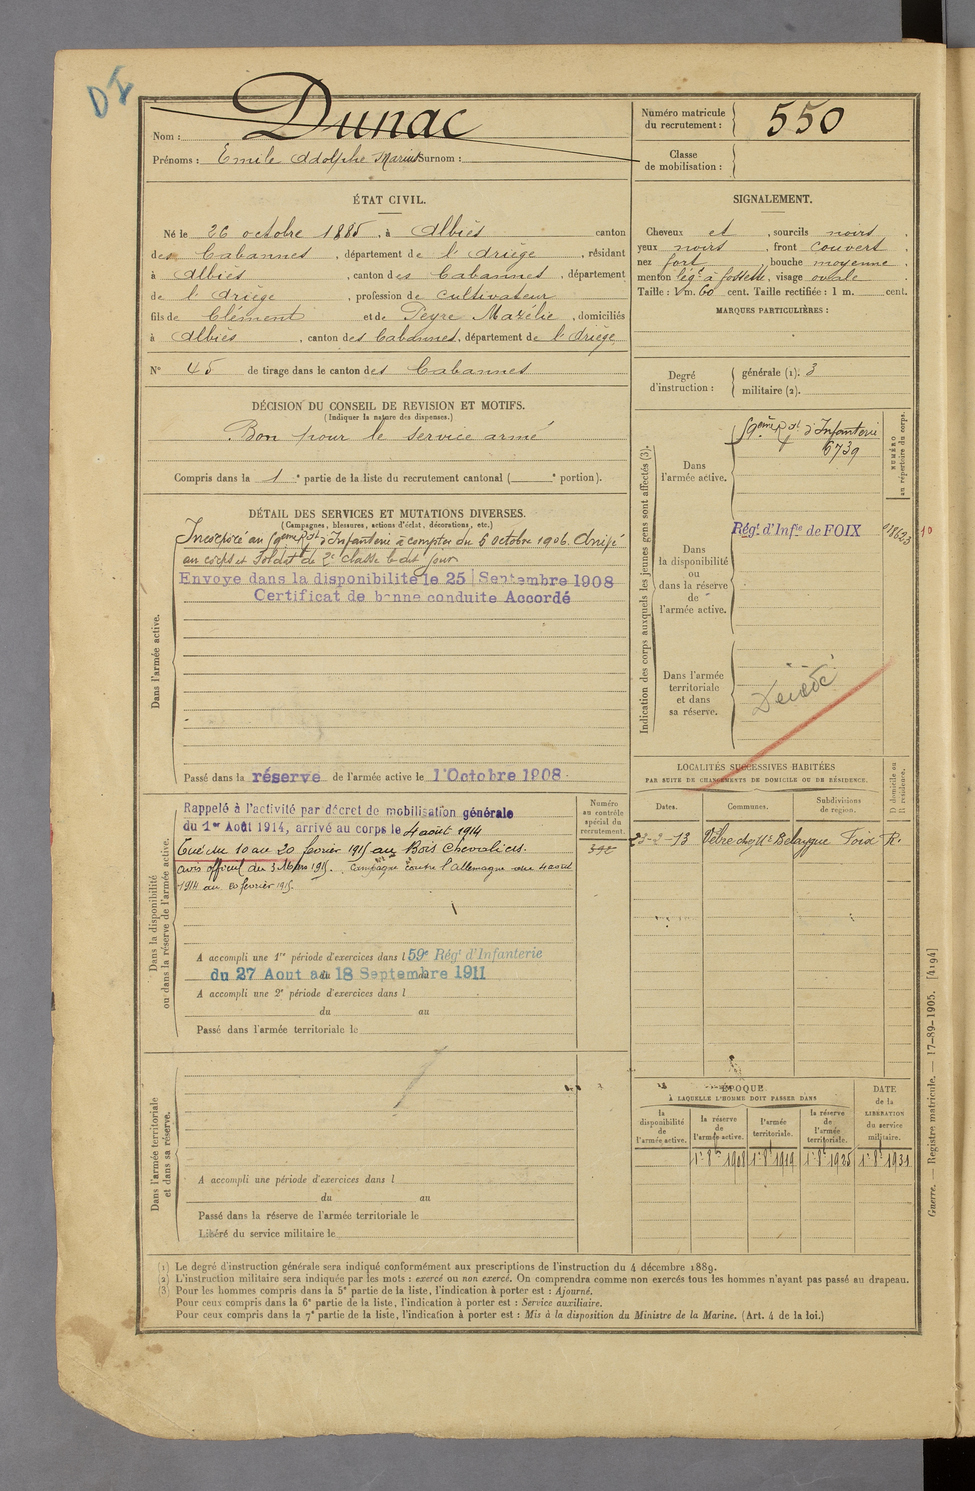 DI
Nom : Dunac
Prénoms : Emile Adolphe Marius Surnom :
Numéro matricule du recrutement : 550
Classe de mobilisation :
ÉTAT CIVIL.
Né le 26 octobre 1885, à Albiès canton
des Cabannes, département de l'Ariège, résidant
à Albiès, canton des Cabannes, département
de l'Ariège, profession de cultivateur
fils de Clément et de Peyre Mazélie, domiciliés
à Albiès, canton des Cabannes, département de l'Ariège
N° 45 de tirage dans le canton des Cabannes
SIGNALEMENT.
Cheveux et, sourcils noirs,
yeux noirs, front couvert,
nez fort, bouche moyenne,
menton lég.t à fossette, visage ovale
Taille : 1 m. 60 cent. Taille rectifiée : 1 m. cent.
MARQUES PARTICULIÈRES :
Degré d'instruction : générale (1). 3
militaire (2).
DÉCISION DU CONSEIL DE REVISION ET MOTIFS.
(Indiquer la nature des dispenses.)
Bon pour le service armé
Compris dans la 1e partie de la liste du recrutement cantonal ( e portion).
DÉTAIL DES SERVICES ET MUTATIONS DIVERSES.
(Campagnes, blessures, actions d'éclat, décorations, etc.)
Dans l'armée active.
Incorporé au 59ème Rgt d'Infanterie à compter du 6 octobre 1906. Arrivé
au corps et Soldat de 2e classe le dit jour
Envoye dans la disponibilité le 25 Septembre 1908
Certificat de bonne conduite Accordé
Passé dans la réserve de l'armée active le 1'Octobre 1908.
Indication des corps auxquels les jeunes gens sont affectés (3).
NUMÉRO au répertoire du corps.
Dans l'armée active.
59ème Rgt d'Infanterie
6739
Dans la disponibilité ou dans la réserve de l'armée active.
Régt. d'Infie de FOIX
10
Dans l'armée territoriale et dans sa réserve.
Décédé
Dans la disponibilité ou dans la réserve de l'armée active.
Numéro au contrôle spécial du recrutement.
Rappelé à l'activité par décret de mobilisation générale
du 1er Août 1914, arrivé au corps le 4 août 1914
Tué du 10 au 20 février 1915 au Bois Chevaliers.
avis officiel du 3 Mars 1915. Campagne contre l'Allemagne du 4 août
1914 au 20 février 1915.
A accompli une 1re période d'exercices dans l 59e Régt d'Infanterie
du 27 Aout au 18 Septembre 1911
A accompli une 2e période d'exercices dans l
du au
Passé dans l'armée territoriale le
LOCALITÉS SUCCESSIVES HABITÉES
PAR SUITE DE CHANGEMENTS DE DOMICILE OU DE RÉSIDENCE.
Dates. Communes. Subdivisions de région. D domicile ou R résidence.
23-2-13 Foix R.
Dans l'armée territoriale et dans sa réserve.
A accompli une période d'exercices dans l
du au
Passé dans la réserve de l'armée territoriale le
Libéré du service militaire le
ÉPOQUE
À LAQUELLE L'HOMME DOIT PASSER DANS
la disponibilité de l'armée active.
la réserve de l'armée active.
l'armée territoriale.
la réserve de l'armée territoriale.
DATE de la LIBÉRATION du service militaire.
1r 8bre 1908 1r 8t 1919 1r 8t 1925 1r 8t 1931
(1) Le degré d'instruction générale sera indiqué conformément aux prescriptions de l'instruction du 4 décembre 1889.
(2) L'instruction militaire sera indiquée par les mots : exercé ou non exercé. On comprendra comme non exercés tous les hommes n'ayant pas passé au drapeau.
(3) Pour les hommes compris dans la 5e partie de la liste, l'indication à porter est : Ajourné.
Pour ceux compris dans la 6e partie de la liste, l'indication à porter est : Service auxiliaire.
Pour ceux compris dans la 7e partie de la liste, l'indication à porter est : Mis à la disposition du Ministre de la Marine. (Art. 4 de la loi.)
Guerre. — Registre matricule. — 17-89-1905. [4194]